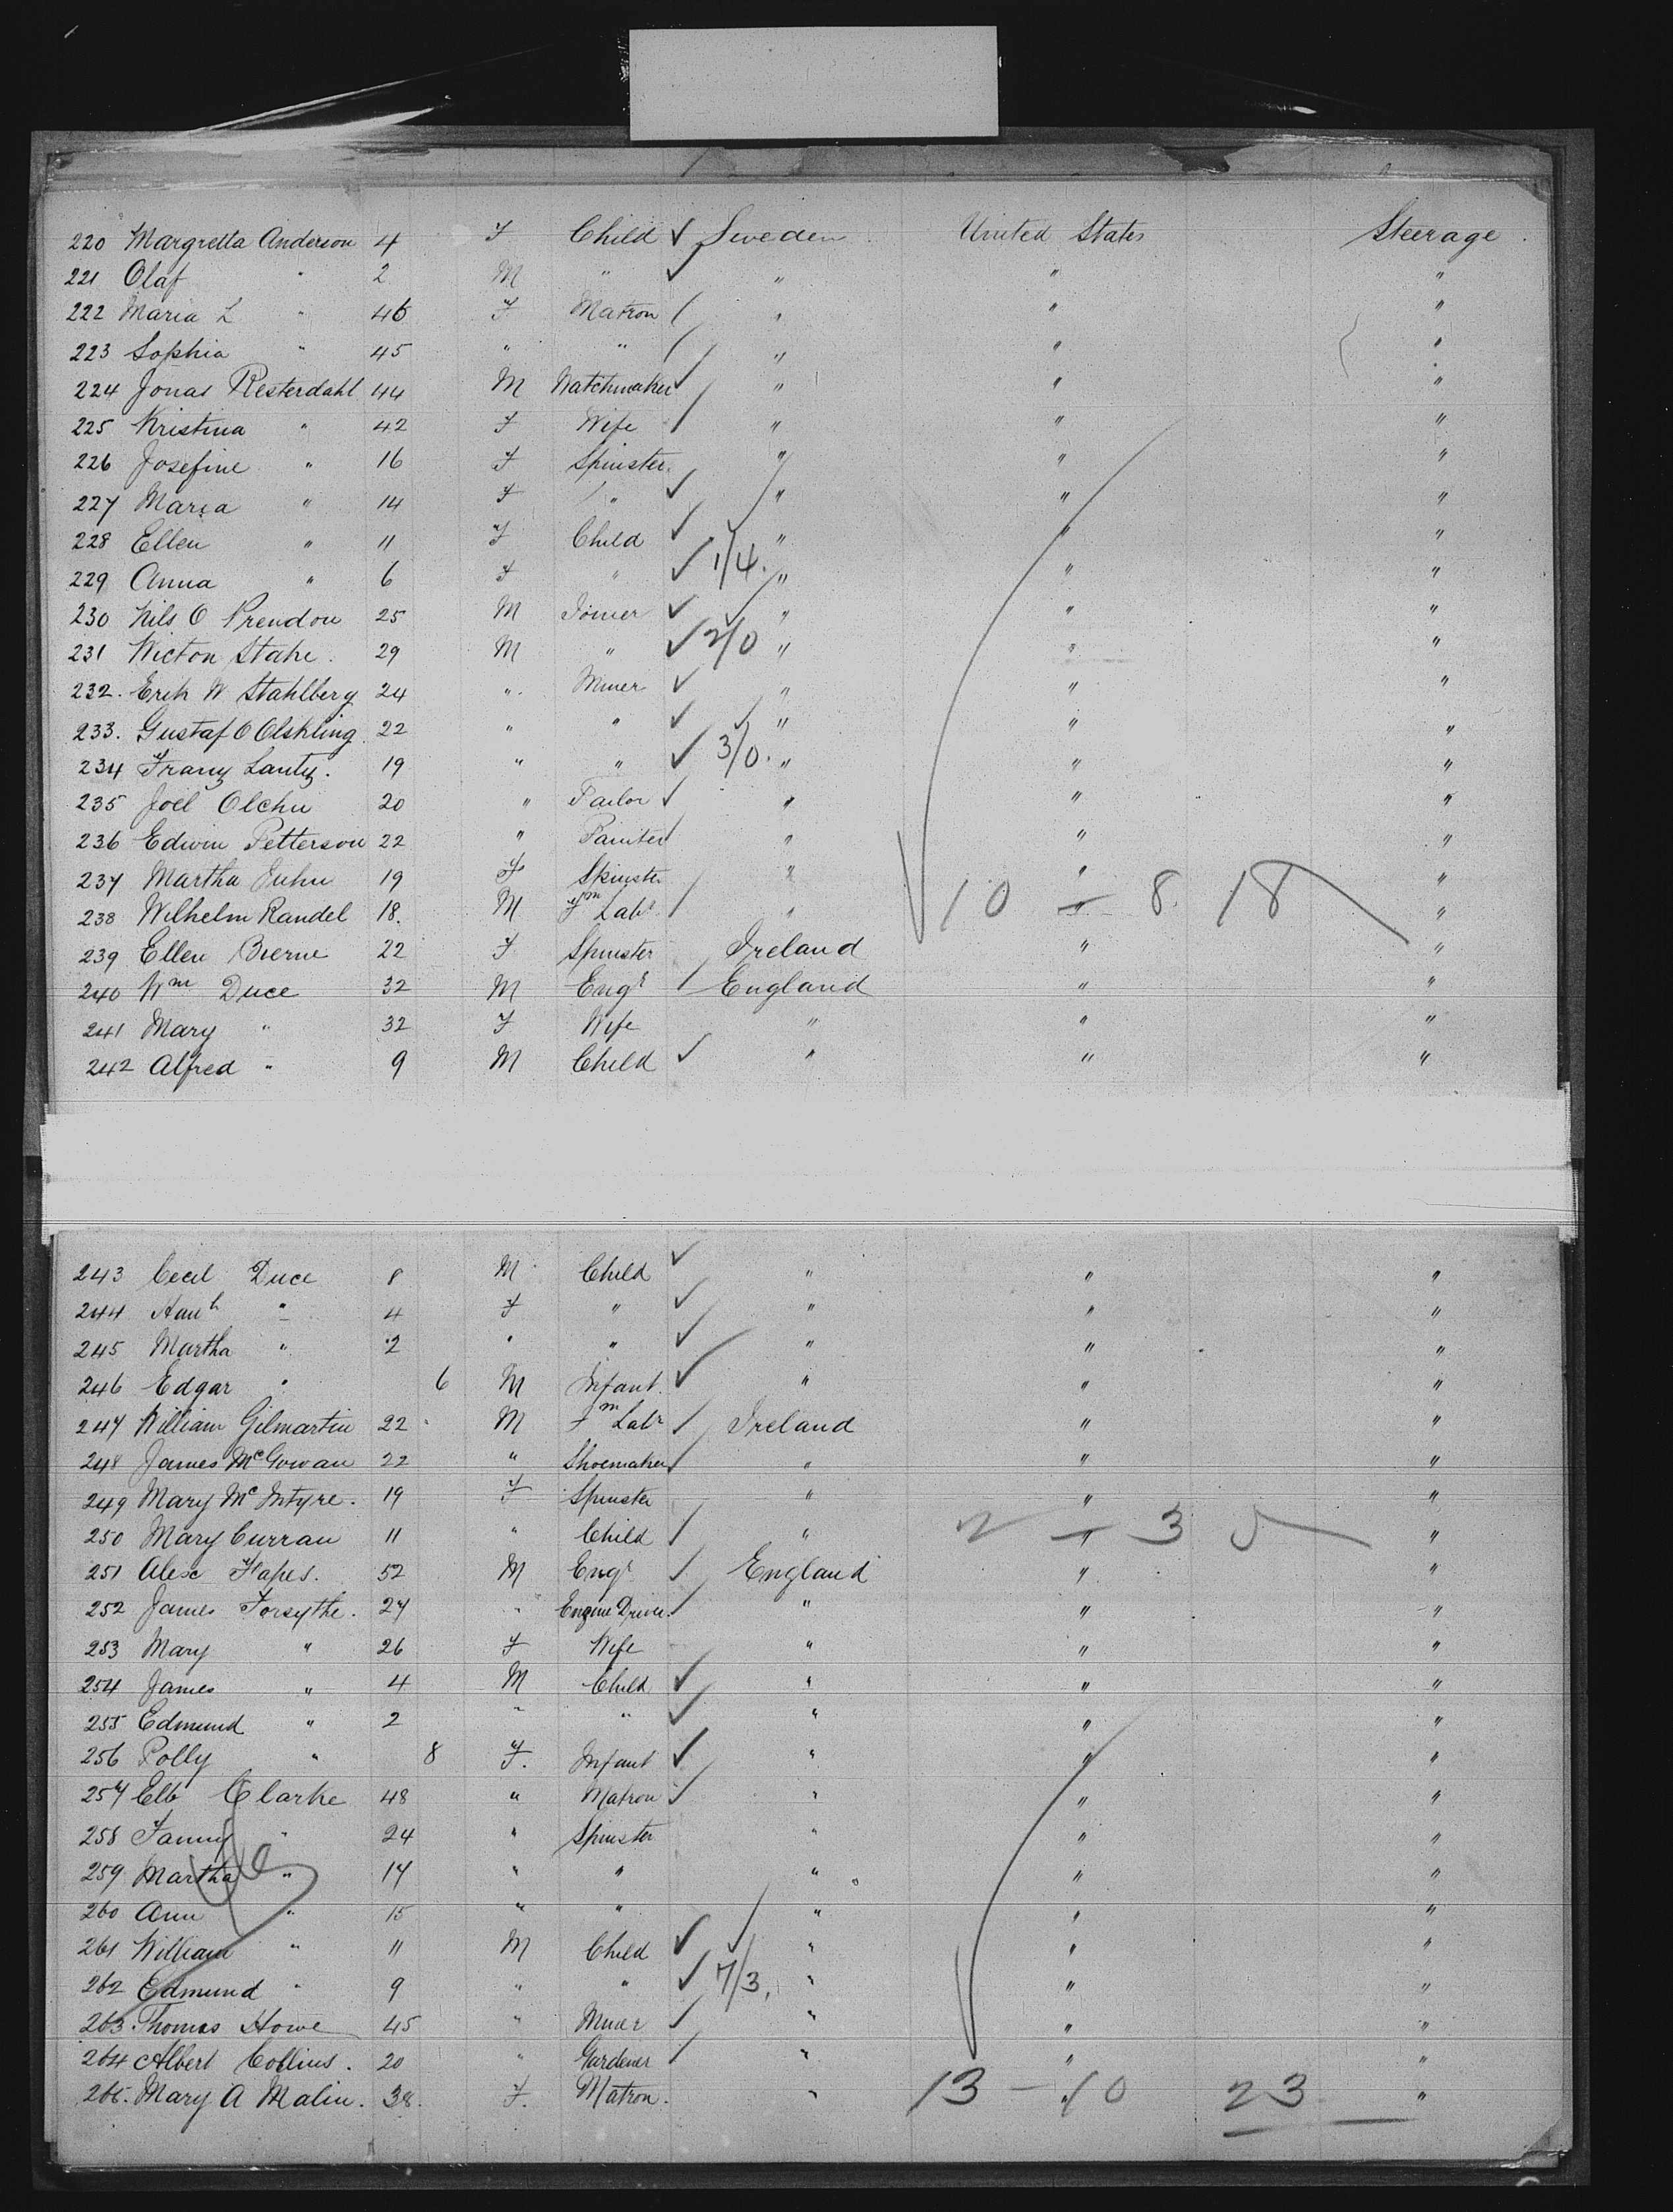 220 Margretta Anderson 4 F Child ✓ Sweden United States Steerage
221 Olaf " 2 M " ✓ " " "
222 Maria L " 46 F Matron / " " "
223 Sophia " 45 " " / " " "
224 Jonas Resterdahl 44 M Watchmaker / " " "
225 Kristina " 42 F Wife / " " "
226 Josefine " 16 F Spinster " " "
227 Maria " 14 F " ✓ " " "
228 Ellen " 11 F Child ✓ " " "
229 Anna " 6 F " ✓ 1/4. " " "
230 Nils O Prendou 25 M Joiner ✓ ✓ " " "
231 Wicton Stahe. 29 M " ✓ 2/0 " " "
232. Erik W Stahlberg 24 " Miner ✓ " " "
233. Gustaf O Olskling 22 " " ✓ ✓ " " "
234 Franz Lantz. 19 " " ✓ 3/0. " " "
235 Joel Olchn 20 " Tailor ✓ " " "
236 Edwin Petterson 22 " Painter / " " "
237 Martha Juhn 19 F Spinster " " "
238 Wilhelm Randel 18. M Fm Labr / " 10 - 8 18 " "
239 Ellen Bierne 22 F Spinster Ireland " "
240 Wm Duce 32 M Engr / England " "
241 Mary " 32 F Wife " " "
242 Alfred " 9 M Child ✓ " " "
243 Cecil Duce 8 M Child ✓ " " "
244 Hanh " 4 F " ✓ " " "
245 Martha " 2 " " ✓ " " "
246 Edgar " 6 M Infant. ✓ " " "
247 William Gilmartin 22 M Fm Labr / Ireland " "
248 James McGowan 22 " Shoemaker / " " "
249 Mary McIntyre. 19 F Spinster " " "
250 Mary Curran 11 " Child / " 2 - 3 5 " "
251 Alexr Hapes. 52 M Engr / England " "
252 James Forsythe. 27 " Engine Driver. / " " "
253 Mary " 26 F Wife " " "
254 James " 4 M Child ✓ " " "
255 Edmund " 2 " " ✓ " " "
256 Polly " 8 F. Infant ✓ " " "
257 Elb Clarke 48 " Matron ✓ " " "
258 Fanny " 24 " Spinster " " "
259 Martha " 17 " " " " "
260 Ann " 15 " " " " "
261 William " 11 M Child ✓ ✓ " " "
262 Edmund " 9 " " ✓ 7/3, " " "
263. Thomas Howe 45 " Miner / " " "
264 Albert Collins. 20 " Gardener / " " "
265. Mary A Malin. 38. F. Matron. " 13 - 10 23 " "